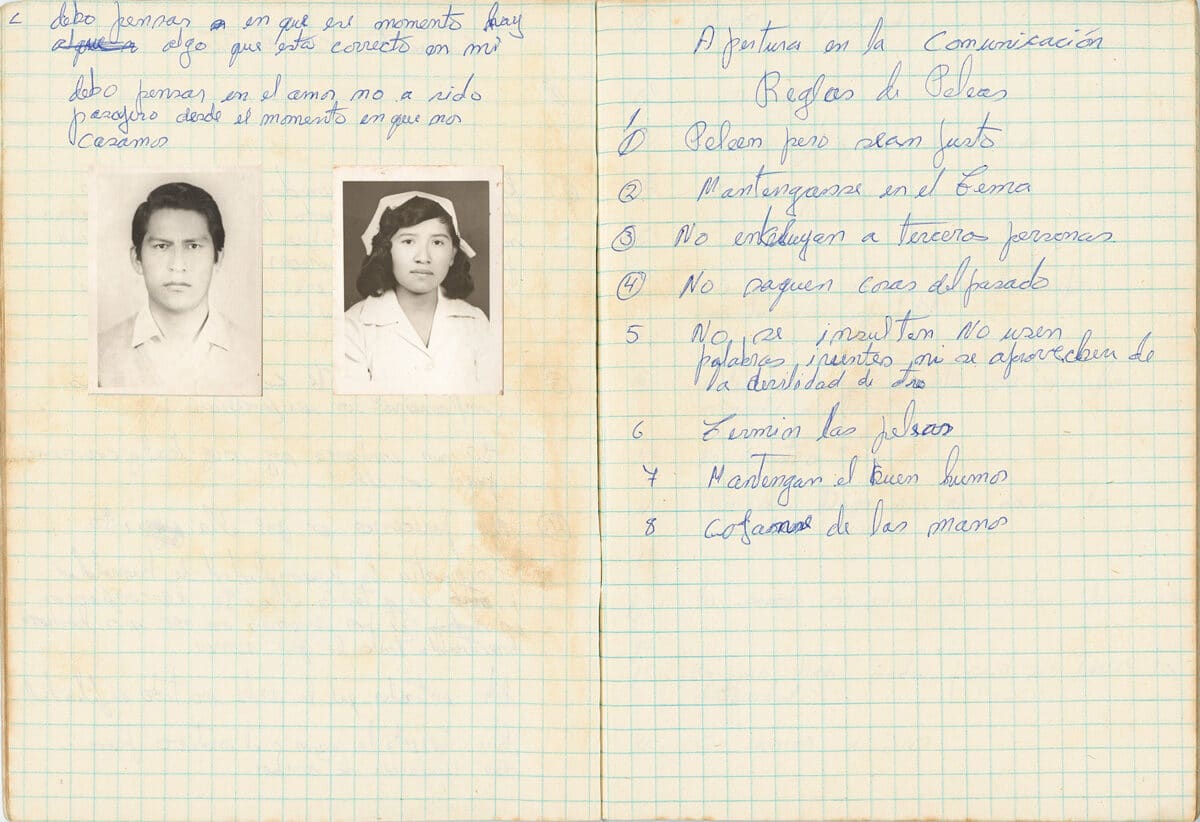 debo pensar en que ese momento hay
algo que esta correcto en mi
debo pensar en el amor no a sido
pasajero desde el momento en que nos
casamos
Apertura en la Comunicación
Reglas de Peleas
1 Peleen pero sean justo
2 Mantenganse en el tema
3 No enkluyan a terceras personas.
4 No saquen cosas del pasado
5 No se insulten No usen
palabras irientes ni se aprovechen de
la devilidad de otro
6 Termin las peleas
7 Mantengan el buen humor
8 de las manos